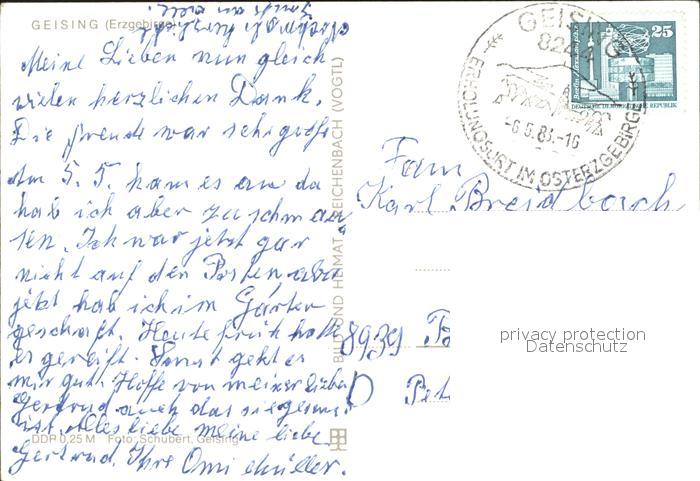 GEISING (Erzgebirge)
Meine Lieben nun gleich
vielen herzlichen Dank.
Die Freude war sehr groß
Am 5. 5. kam es an da
hab ich aber zu schm
sen. Ich war jetzt gar
nicht auf den Posten aber
jetzt hab ich im Garten
geschafft. Heute früh hat
es gereift. Sonst geht es
mir gut. Hoffe von meiner lieben
Gertrud auch das sie gesund
ist. Alles liebe meine liebe
DDR 0,25 M Foto: Schubert, Geising
Gertrud. Ihre Omi Müller.
BILD UND HEIMAT REICHENBACH (VOGTL)
GEISING
8244
-6.5.83.-16
ERHOLUNGSORT IM OSTERZGEBIRGE
25
DEUTSCHE DEMOKRATISCHE REPUBLIK
Fam
Karl Breidbach
8939 B
D Pet
privacy protection
Datenschutz